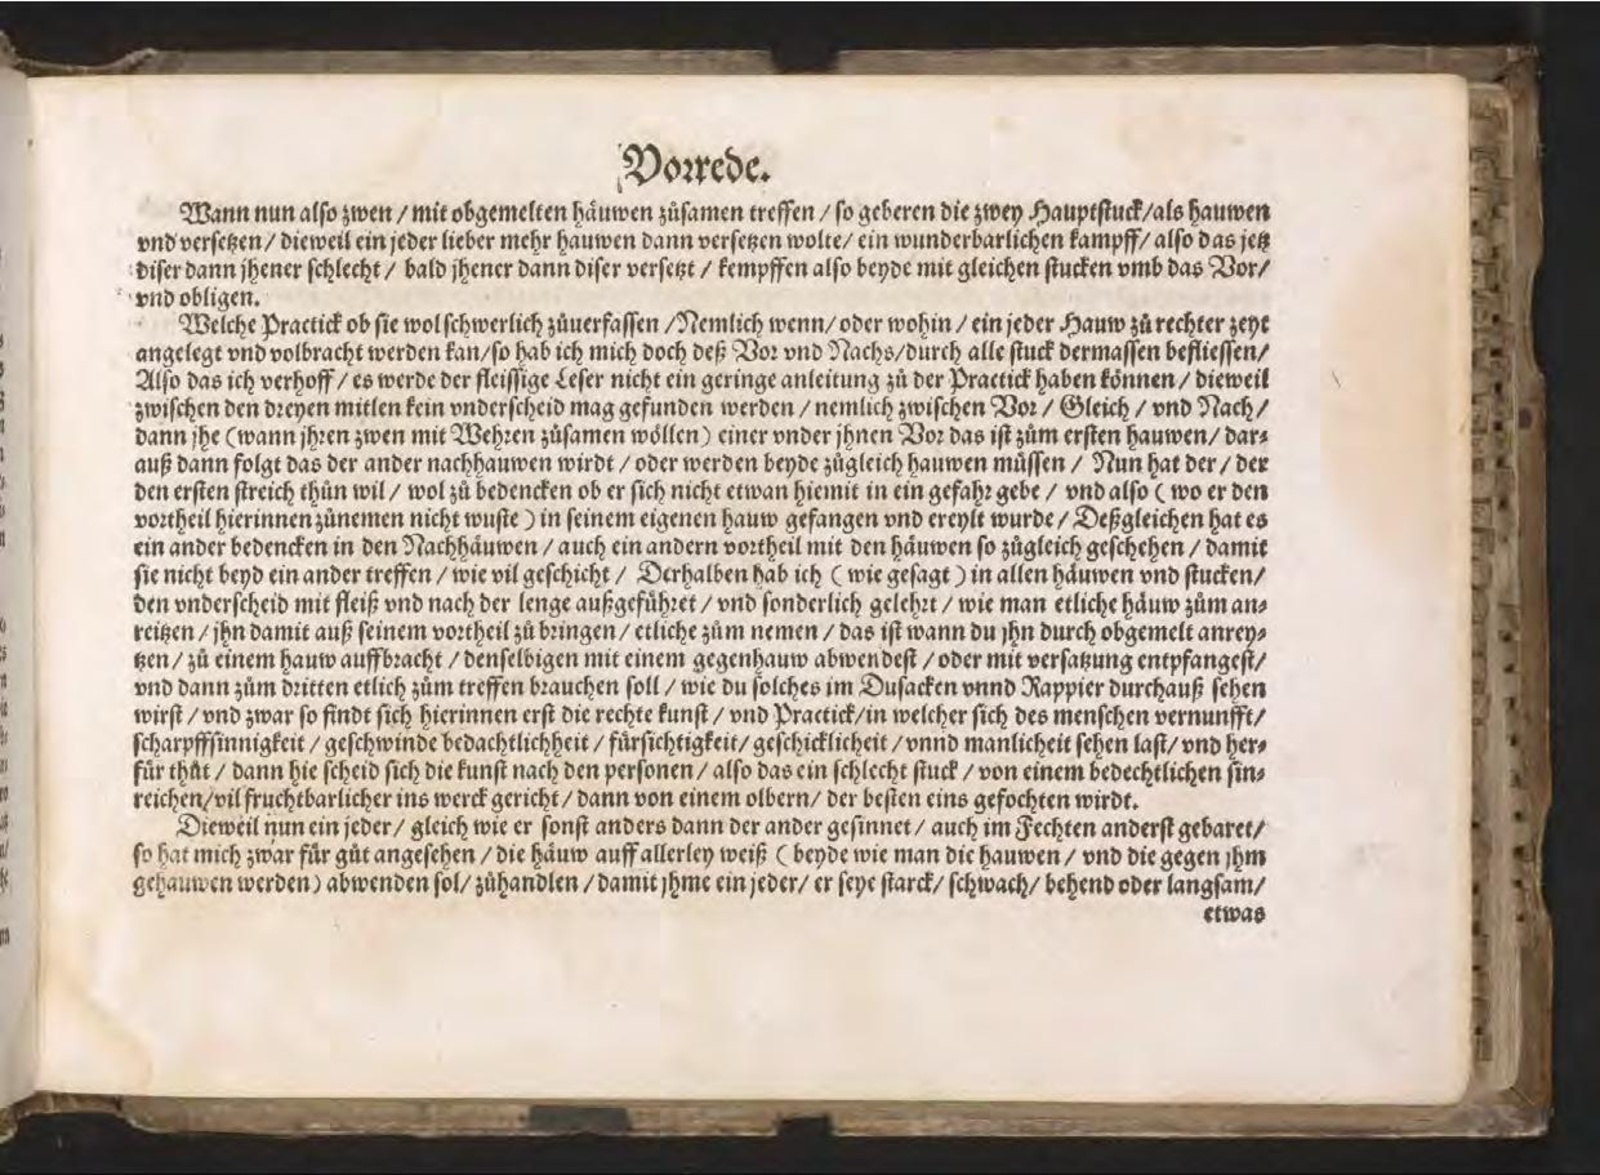 Vorrede.
Wann nun also zwen / mit obgemelten häuwen zůsamen treffen / so geberen die zwey Hauptstuck/als hauwen
vnd versetzen / dieweil ein jeder lieber mehr hauwen dann versetzen wolte/ ein wunderbarlichen kampff/ also das jetz
diser dann jhener schlecht / bald jhener dann diser versetzt / kempffen also beyde mit gleichen stucken vmb das Vor/
vnd obligen.
Welche Practick ob sie wol schwerlich zůuerfassen /Nemlich wenn/ oder wohin / ein jeder Hauw zů rechter zeyt
angelegt vnd volbracht werden kan/so hab ich mich doch deß Vor vnd Nachs/durch alle stuck dermassen befliessen/
Also das ich verhoff / es werde der fleissige Leser nicht ein geringe anleitung zů der Practick haben können / dieweil
zwischen den dreyen mitlen kein vnderscheid mag gefunden werden / nemlich zwischen Vor / Gleich / vnd Nach/
dann jhe (wann jhren zwen mit Wehren zůsamen wöllen) einer vnder jhnen Vor das ist zům ersten hauwen/ dar-
auß dann folgt das der ander nachhauwen wirdt / oder werden beyde zůgleich hauwen müssen / Nun hat der / der
den ersten streich thůn wil / wol zů bedencken ob er sich nicht etwan hiemit in ein gefahr gebe / vnd also ( wo er den
vortheil hierinnen zůnemen nicht wuste ) in seinem eigenen hauw gefangen vnd ereylt wurde / Deßgleichen hat es
ein ander bedencken in den Nachhäuwen / auch ein andern vortheil mit den häuwen so zůgleich geschehen / damit
sie nicht beyd ein ander treffen / wie vil geschicht / Derhalben hab ich ( wie gesagt ) in allen häuwen vnd stucken/
den vnderscheid mit fleiß vnd nach der lenge außgeführet / vnd sonderlich gelehrt / wie man etliche häuw zům an-
reitzen / jhn damit auß seinem vortheil zů bringen / etliche zům nemen / das ist wann du jhn durch obgemelt anrey-
tzen / zů einem hauw auffbracht / denselbigen mit einem gegenhauw abwendest / oder mit versatzung entpfangest/
vnd dann zům dritten etlich zům treffen brauchen soll / wie du solches im Dusacken vnnd Rappier durchauß sehen
wirst / vnd zwar so findt sich hierinnen erst die rechte kunst / vnd Practick/in welcher sich des menschen vernunfft/
scharpffsinnigkeit / geschwinde bedachtlichheit / fürsichtigkeit/ geschicklicheit / vnnd manlicheit sehen last/ vnd her-
für thůt / dann hie scheid sich die kunst nach den personen / also das ein schlecht stuck / von einem bedechtlichen sin-
reichen/vil fruchtbarlicher ins werck gericht / dann von einem olbern/ der besten eins gefochten wirdt.
Dieweil nun ein jeder/ gleich wie er sonst anders dann der ander gesinnet / auch im Fechten anderst gebaret/
so hat mich zwar für gůt angesehen / die häuw auff allerley weiß ( beyde wie man die hauwen / vnd die gegen jhm
gehauwen werden) abwenden sol/ zůhandlen / damit jhme ein jeder/ er seye starck/ schwach/ behend oder langsam/
etwas